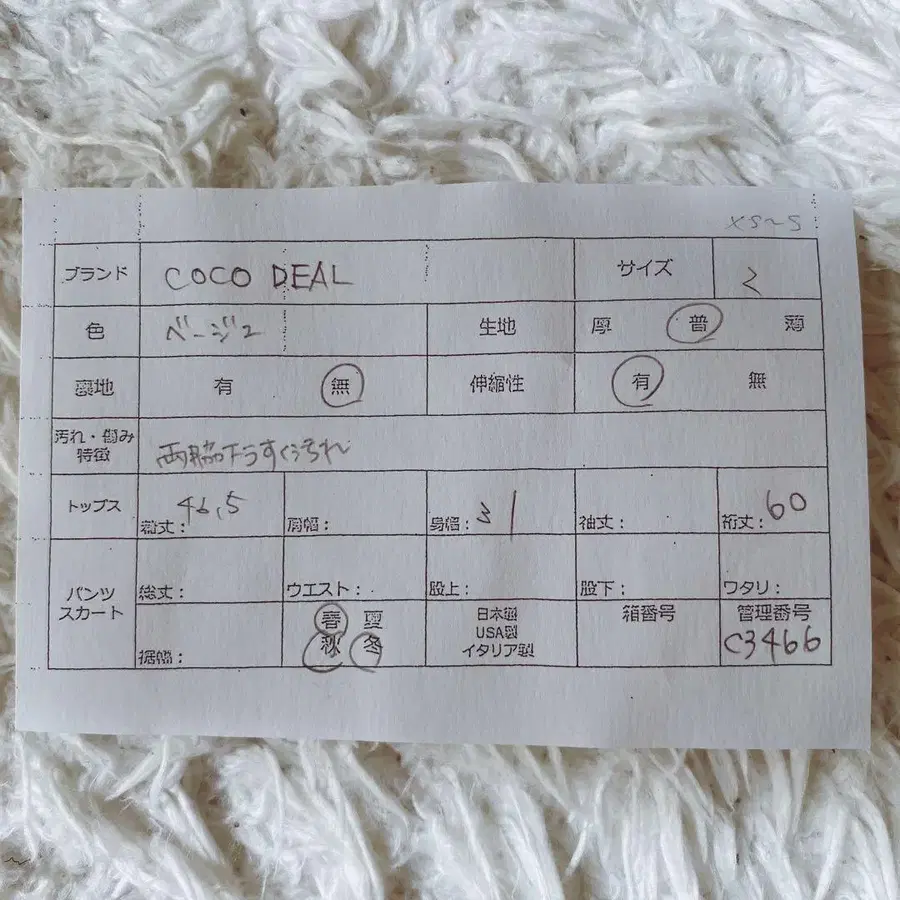 XS~S
ブランド COCO DEAL サイズ 2
色 ベージュ 生地 厚 普 薄
裏地 有 無 伸縮性 有 無
汚れ・傷み
特徴 両脇下うすく汚れ
トップス 総丈: 46,5 肩幅: 身幅: 31 袖丈: 裄丈: 60
パンツ
スカート 総丈: ウエスト: 股上: 股下: ワタリ:
裾幅: 春 夏
秋 冬
日本製
USA製
イタリア製
箱番号
管理番号
C3466